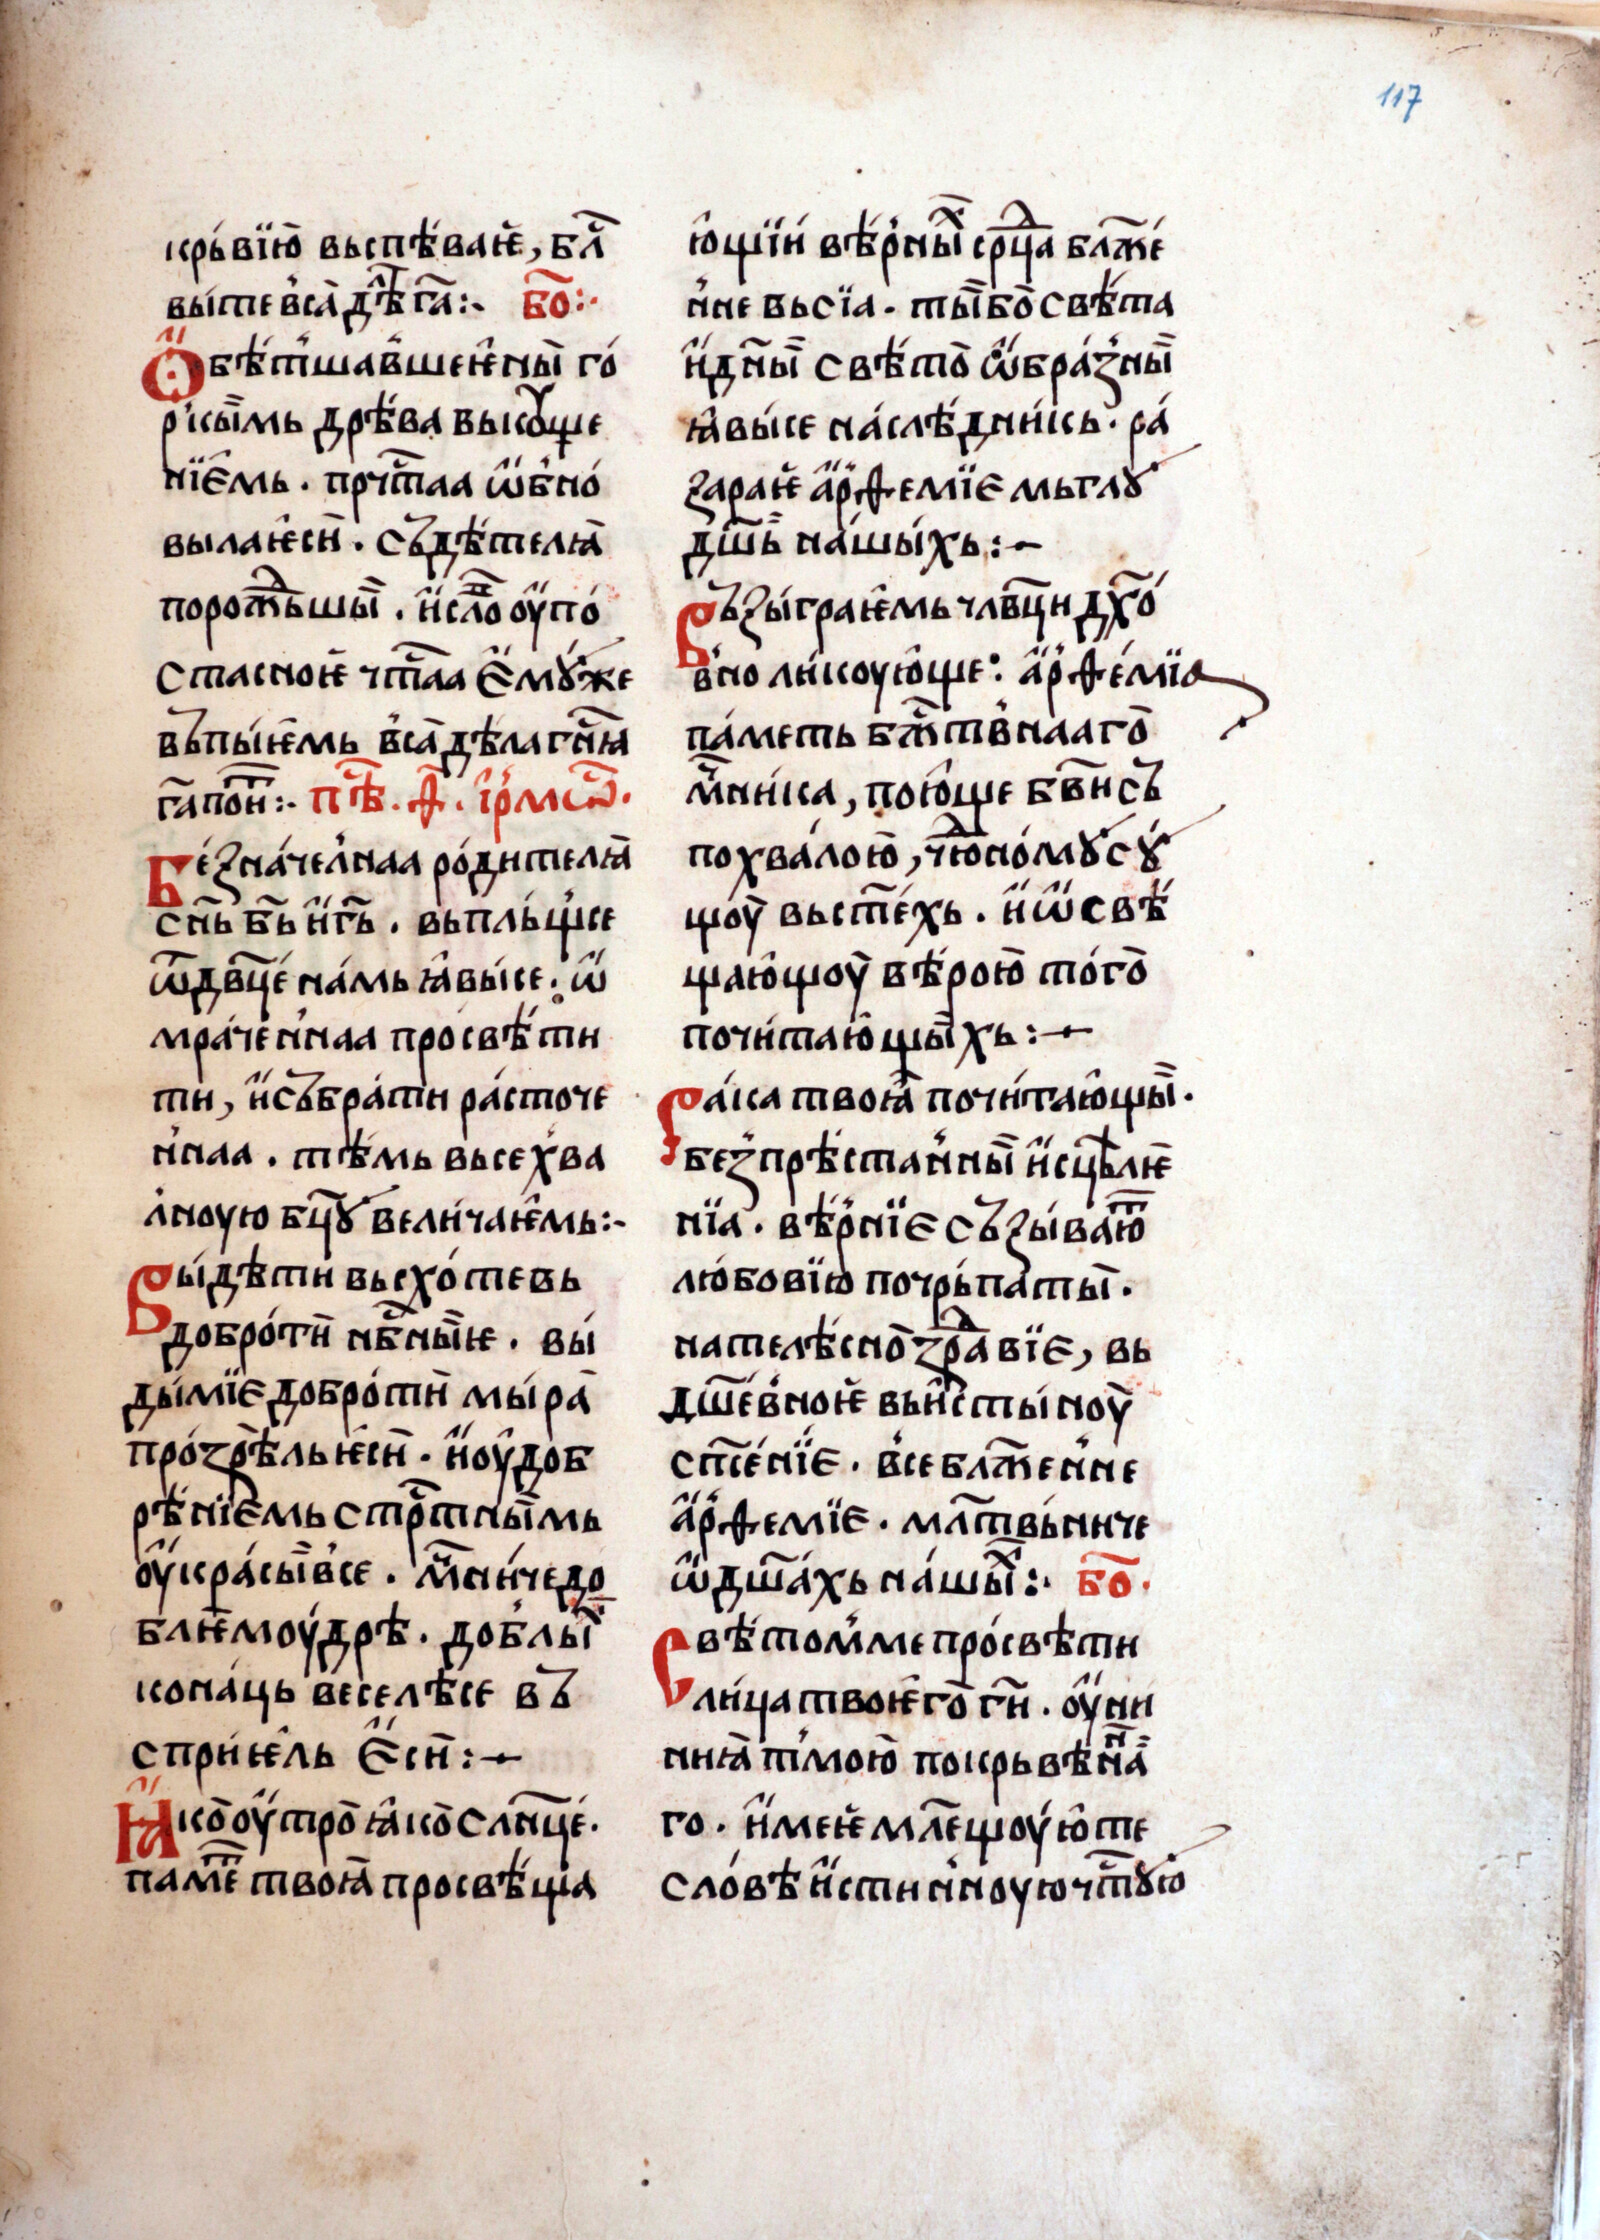 117
крьвїю҆ вьспѣ́вак҆е, бл҃г
ви́те в̾са̀ дѣ҆ла̀ гн҃а:· бо҃:·
Ѡ҆бѣт̾шав̾шеи҆ ны̏ го́
р̾кы̏мь дрѣ́ва вькꙋше
нїе҆мь. прчⷭ҇таа ѡ҆б̾но́
вылаѥ҆сы̀. съдѣ́телꙗ̀
порож҃дьшы̏. и҆ сло҃во ѹ҆по́
стасноѥ҆ чⷭ҇таа є҆мꙋ́же
въпыѥ҆мь в̾са̀ дѣ́ла гнⷭ҇ꙗ
га҃ поиⷮ:· пѣⷭ҇. ѳ҃. і҆р̾мѡⷭ҇.
Без̾на́чел̾наа ро́дителꙗ̀
сн҃ь бь҃ и҆ гь҃. вьпль́щ̾се
ѿ дв҃це́ на́мь ꙗ҆ви́се. ѡ҆
мра́чен̾наа просвѣ́ти
ти, и҆ събра́ти ра́сточе
н̾наа. тѣ́мь вьсех̾ва
л̾ноую бц҃ꙋ вели́чаѥ҆мь:·
Вы́дѣти вьсхо́тевь
добро́ты̀ нбⷭ҇ны̏ѥ. вы́
ды́мїе добро́ты̀ мы́ра̀
про́зрѣль ѥ҆сы̀. и҆ ѹ҆доб
рѣ́нїе҆мь стрⷭ҇тны̏мь
ѹ҆кра́сы̏в̾се. мⷱ҇ни́че до
блѥ҆моу́дрѣ. доб̾лы̏
кона́ць веселѣ́се въ
спри́ѥ҆ль є҆сы̀:~
Ꙗ҆ко̀ ѹ҆тро̀ ꙗ҆ко̀ сл҃нце́.
паме́ⷮ твоꙗ̀ просвѣ́ща
ю҆щїи́ вѣ́р̾ныⷯ срⷣца блж҃е́
н̾не вьсїа. ты̏ бо̀ свѣ́та
и҆ дн҃ы̏ свѣ́то ѡ҆бра́з̾ны̏
ꙗ҆ви́се на́слѣдни́кь. ра́
зараѥ҆ а҆р̾ѳемїе мьглꙋ
дш҃ь̏ на́шы́хь:~
Възы́граѥ҆мь чл҃вци дх҃о́
в̾но ли́коую҆ще: а҆р̾ѳе́мїа
па́меть бжⷭ҇тв̾нааго̀
мⷱ҇ни́ка, пою҆ще бв҃и съ
похва́лою҆, чю҃ⷣно́мꙋ сꙋ́
щоу̀ вьстⷯе́хь. и҆ ѡ҆свѣ́
щаю҆щоу̀ вѣ́рою҆ то́го̀
почи́таю҆щы̏хь:~
Ра́ка твоꙗ̀ почи́таю҆щы̏.
без̾прѣ́стан̾ны̏ и҆сцѣлѥ҆
нїа. вѣ́р̾нїе съзы́ваюⷮ
лю́бовїю почрь́паты̏.
на телѣ́сно̀ зрⷣавїе, вь
дш҃е́в̾ноѥ҆ вьи҆сты́ноу̀
сп҃се́нїе. в̾се блаж҃ен̾не
а҆р̾ѳемїе. млⷮ҇вы́ниче
ѡ҆ дш҃а́хь на́шыⷯ:· бо҃.
Свѣ́том̾ ме про́свѣти
ли́ца твоѥ҆го̀ гы҃. ѹ҆ни
ниꙗ̀ т̾мою҆ покрьвѣ́н̾на̀
го. и҆меѥ҆ мл҃ещоу́ю҆ те
сло́вѣ и҆стин̾ноую чⷭ҇тꙋю